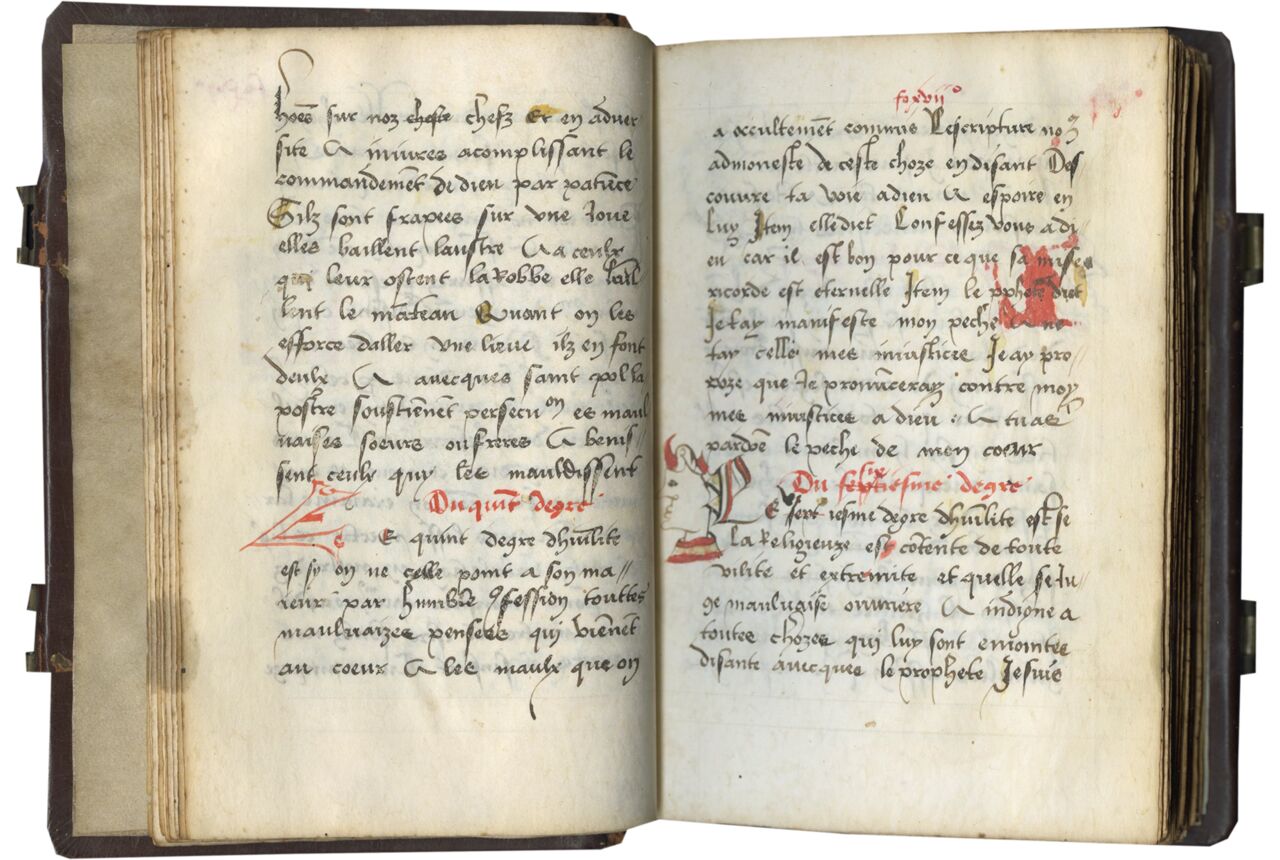 hoēs sur noz cheſte chefz Et en adver
site & iniures acomplissant le
commandement de dieu par patience
Silz sont frapees sur vne Joue
elles baillent laustre & a ceulx
qui leur ostent la Robbe elle bail
lent le māteau Quant on les
efforce daller vne lieue ilz en font
deulx & avecques saint pol la
postre soustienēt persecuon es maul
uaises soeurs ou freres & benis//
sent ceulx quy les mauldissent
Du quint degre
Le E quint degre dhūilite
est sy on ne celle point a son ma//
ieur par humble ꝯfession touttes
maulvaizes pensees qui viēnēt
au coeur & les maulx que on
fo xvii°
a occultemēt commis Lescripture no9
admoneste de ceste choze en disant Des
couvre ta voie a dieu & espoire en
luy Item elle dict Confessez vous a di//
eu car il est bon pour ce que sa mise
ricorde est eternelle Item le pphete dict
Je tay manifeste mon peche & ne
tay celle mes iniustices Je ay pro//
poze que Je pronūceray contre moy
mes iniustices a dieu : & tu as
pardōe le peche de mon coeur
Du septiesme degre
six
LE septiesme degre dhūilite est se
la Religieuze est cōtente de toute
vilite et extremite et quelle se Ju
ge maulvaise ouvriere & indigne a
toutes chozes qui luy sont eniointes
disante avecques le prophete Je suis